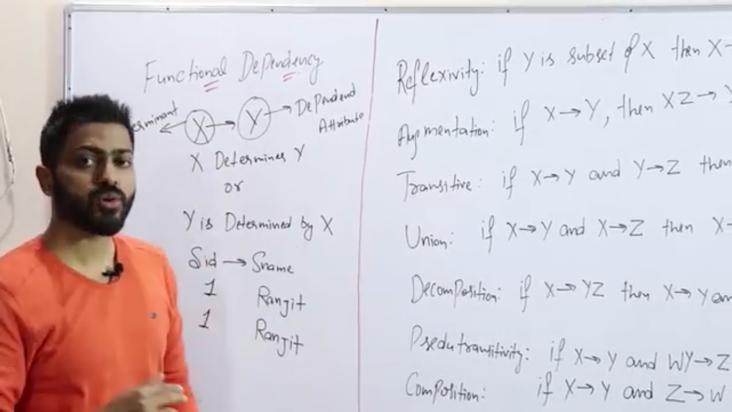 Functional Dependency
X → Y → Dependend
Attribute
X Determines Y
or
Y is Determined by X
Sid → Sname
1 Ranjit
1 Ranjit
Reflexivity: if Y is subset of X then X→
Augmentation: if X→Y, then XZ→Y
Transitive: if X→Y and Y→Z then
Union: if X→Y and X→Z then X→
Decomposition: if X→YZ then X→Y an
Psedutransitivity: if X→Y and WY→Z
Composition: if X→Y and Z→W